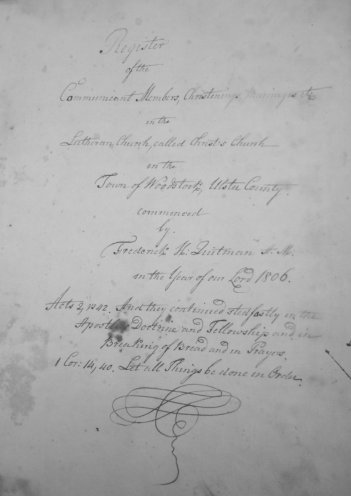 Register
of the
Communicant Members, Christenings, Marriages etc
in the
Lutheran Church, called Christ's Church
in the
Town of Woodstock, Ulster County
commenced
by
Frederick H. Quitman A. M.
in the Year of our Lord 1806.
Acts 2, v. 42. And they continued stedfastly in the
Apostles Doctrine and Fellowship and in
Breaking of Bread and in Prayers.
1 Cor: 14, 40. Let all Things be done in Order.